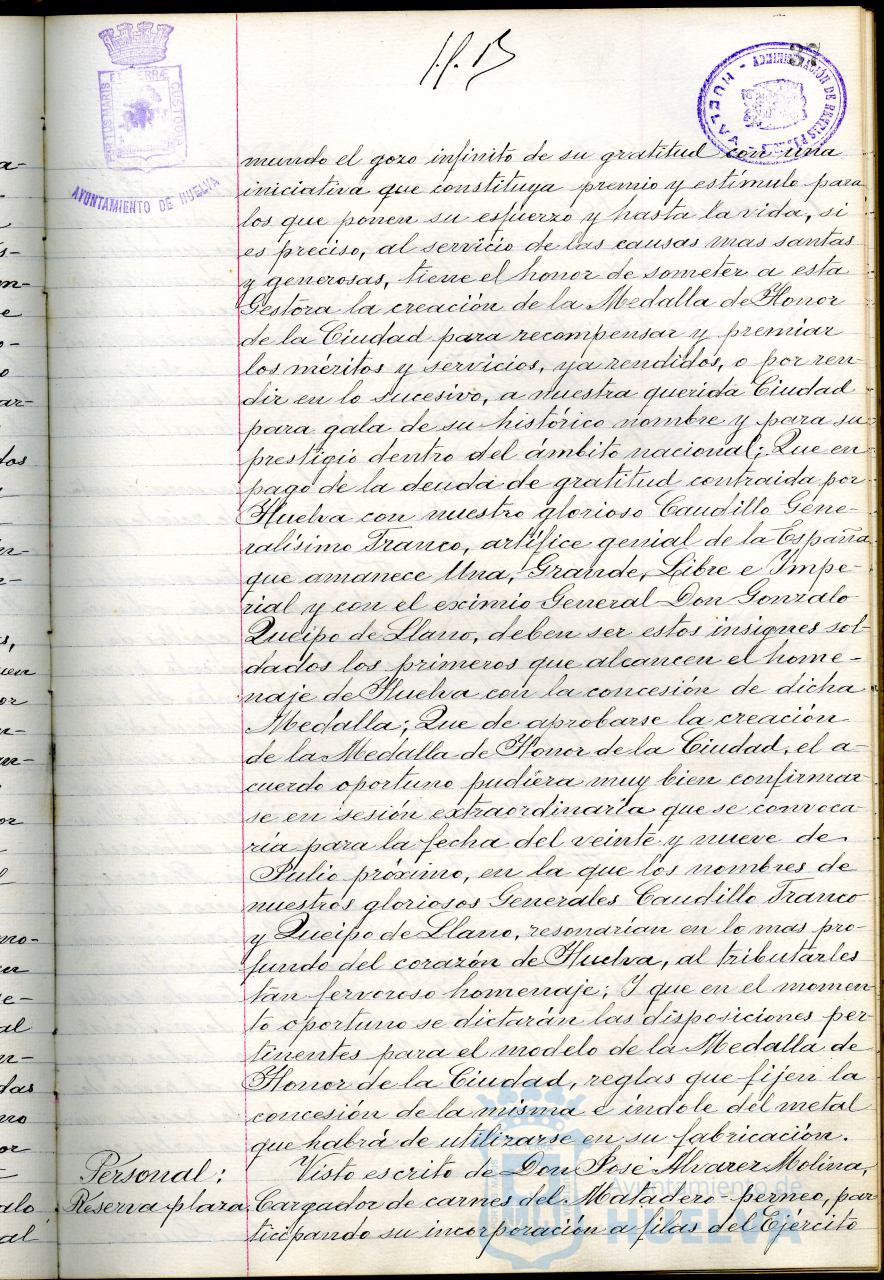 PORTUS MARIS ET TERRÆ CUSTODIA
AYUNTAMIENTO DE HUELVA
ADMINISTRACIÓN DE RENTAS PÚBLICAS - HUELVA -
mundo el gozo infinito de su gratitud con una
iniciativa que constituya premio y estímulo para
los que ponen su esfuerzo y hasta la vida, si
es preciso, al servicio de las causas mas santas
y generosas, tiene el honor de someter a esta
Gestora la creación de la Medalla de Honor
de la Ciudad para recompensar y premiar
los méritos y servicios, ya rendidos, o por ren-
dir en lo sucesivo, a nuestra querida Ciudad
para gala de su histórico nombre y para su
prestigio dentro del ámbito nacional; Que en
pago de la deuda de gratitud contraida por
Huelva con nuestro glorioso Caudillo Gene-
ralísimo Franco, artífice genial de la España
que amanece Una, Grande, Libre e Impe-
rial y con el eximio General Don Gonzalo
Queipo de Llano, deben ser estos insignes sol-
dados los primeros que alcancen el home-
naje de Huelva con la concesión de dicha
Medalla; Que de aprobarse la creación
de la Medalla de Honor de la Ciudad, el a-
cuerdo oportuno pudiera muy bien confirmar-
se en sesión extraordinaria que se convoca-
ría para la fecha del veinte y nueve de
Julio próximo, en la que los nombres de
nuestros gloriosos Generales Caudillo Franco
y Queipo de Llano, resonarían en lo mas pro-
fundo del corazón de Huelva, al tributarles
tan fervoroso homenaje; Y que en el momen-
to oportuno se dictarán las disposiciones per-
tinentes para el modelo de la Medalla de
Honor de la Ciudad, reglas que fijen la
concesión de la misma e índole del metal
que habrá de utilizarse en su fabricación.
Personal:
Reserva plaza.
Visto escrito de Don José Alvarez Molina,
Cargador de carnes del Matadero-perneo, par-
ticipando su incorporación a filas del Ejército
Ayuntamiento de
HUELVA